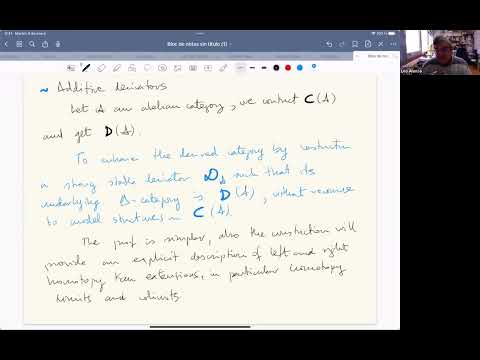 9:41 Martes 9 de enero
Bloc de notas sin título (1)
Leo Alonso
~ Additive derivators
Let A an abelian category, we contruct C(A)
and get D(A).
To enhance the derived category by constructing
a strong stable derivator D_A such that its
underlying Δ-category is D(A), without recourse
to model structures in C(A).
The proof is simpler, also the construction will
provide an explicit description of left and right
homotopy Kan extensions, in particular homotopy
limits and colimits.